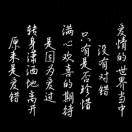 爱情的世界当中
没有对错
只有是否珍惜
满心欢喜的期待
是因为爱过
转身潇洒地离开
原来是爱错